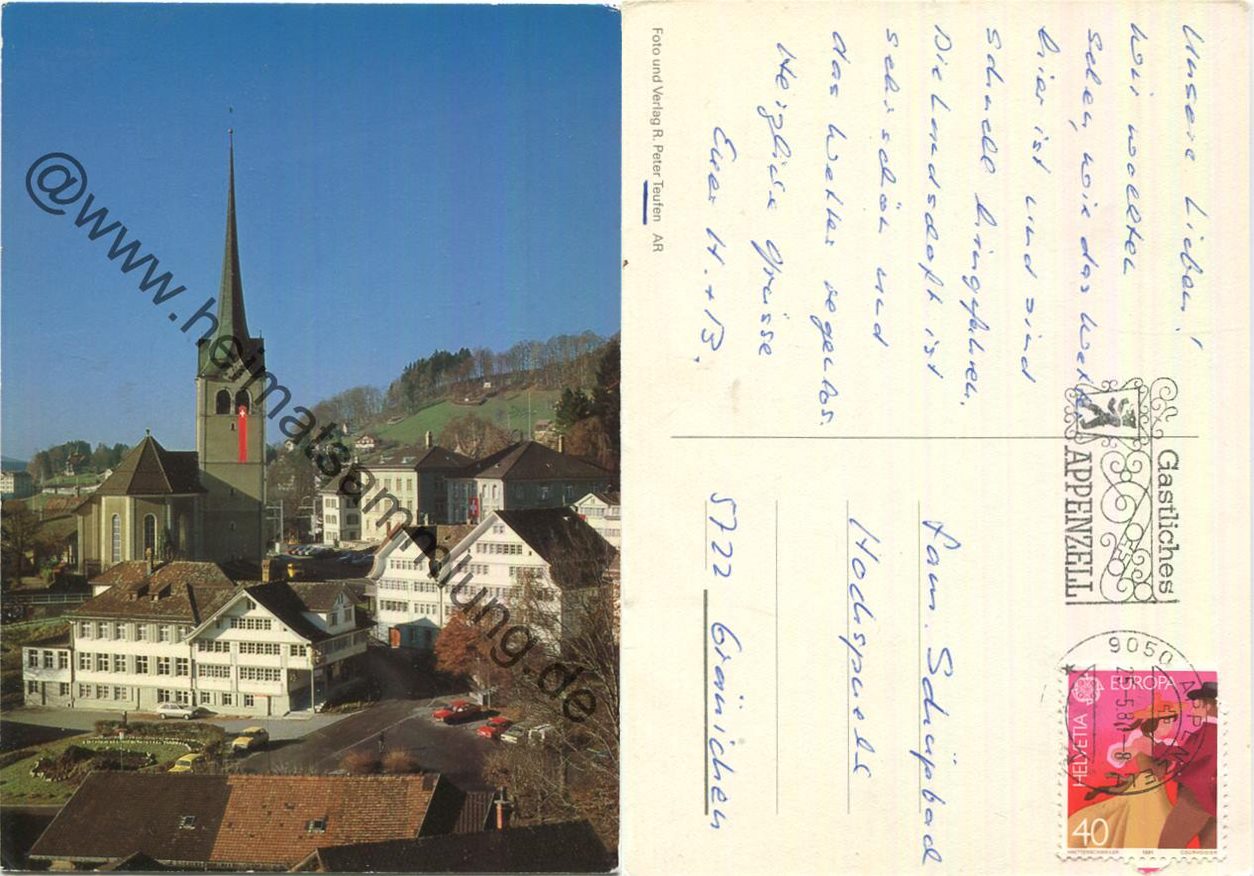 @www.heimatsammlung.de
Foto und Verlag R. Peter Teufen AR
Unsere Lieben!
Wir wollten
sehen, wie das Wetter
hier ist und sind
schnell hingefahren.
Die Landschaft ist
sehr schön und
das Wetter regenlos.
Herzliche Grüsse
Euer H. + B.
Gastliches
APPENZELL
9050
APPENZELL
25.5.81-8
EUROPA
HELVETIA
40
1981
COURVOISIER
Fam. Schüpbad
Hochspuele
5722 Gränichen